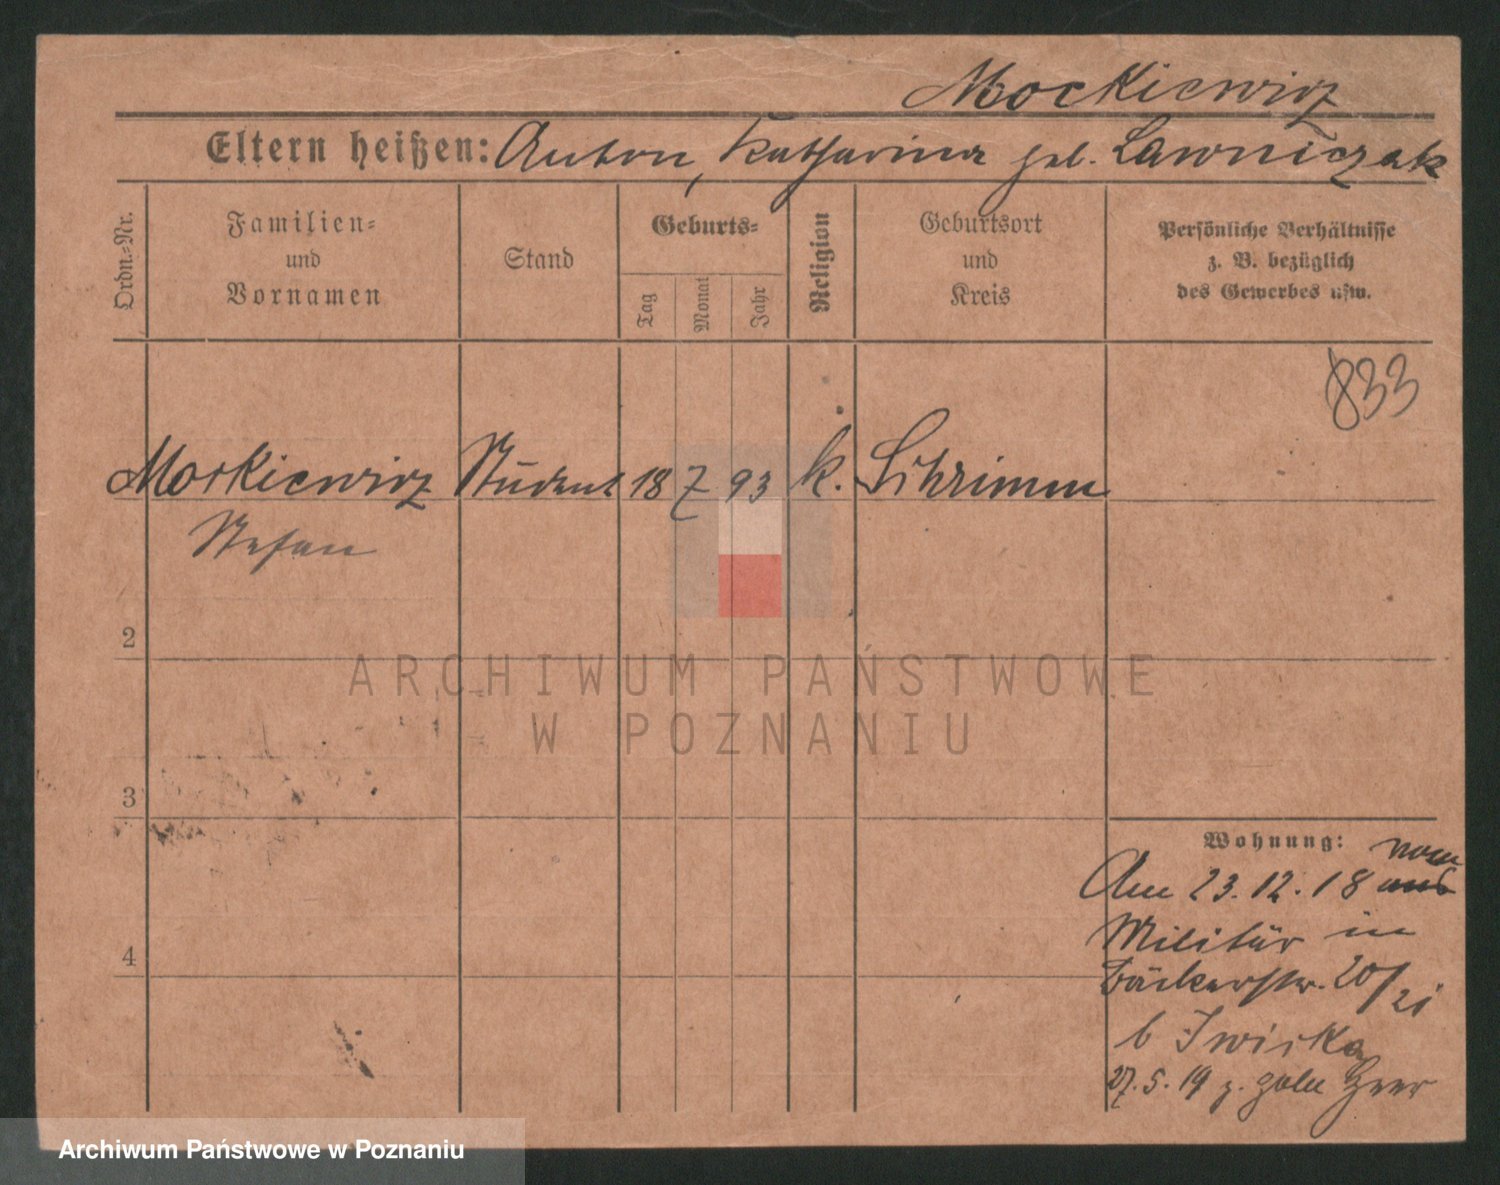 Mockiewicz
Eltern heißen: Anton, Katharina geb. Lawniczak
Ordn.-Nr.
Familien-
und
Vornamen
Stand
Geburts-
Tag
Monat
Jahr
Religion
Geburtsort
und
Kreis
Persönliche Verhältnisse
z. B. bezüglich
des Gewerbes usw.
833
Mockiewicz Student 18 7 93 k. Schrimm
Stefan
2
3
4
Wohnung:
vom
Am 23.12.18 aus
Militär in
Bäckerstr. 20/21
b
27.5.19 z. poln Heer
ARCHIWUM PAŃSTWOWE
W POZNANIU
Archiwum Państwowe w Poznaniu